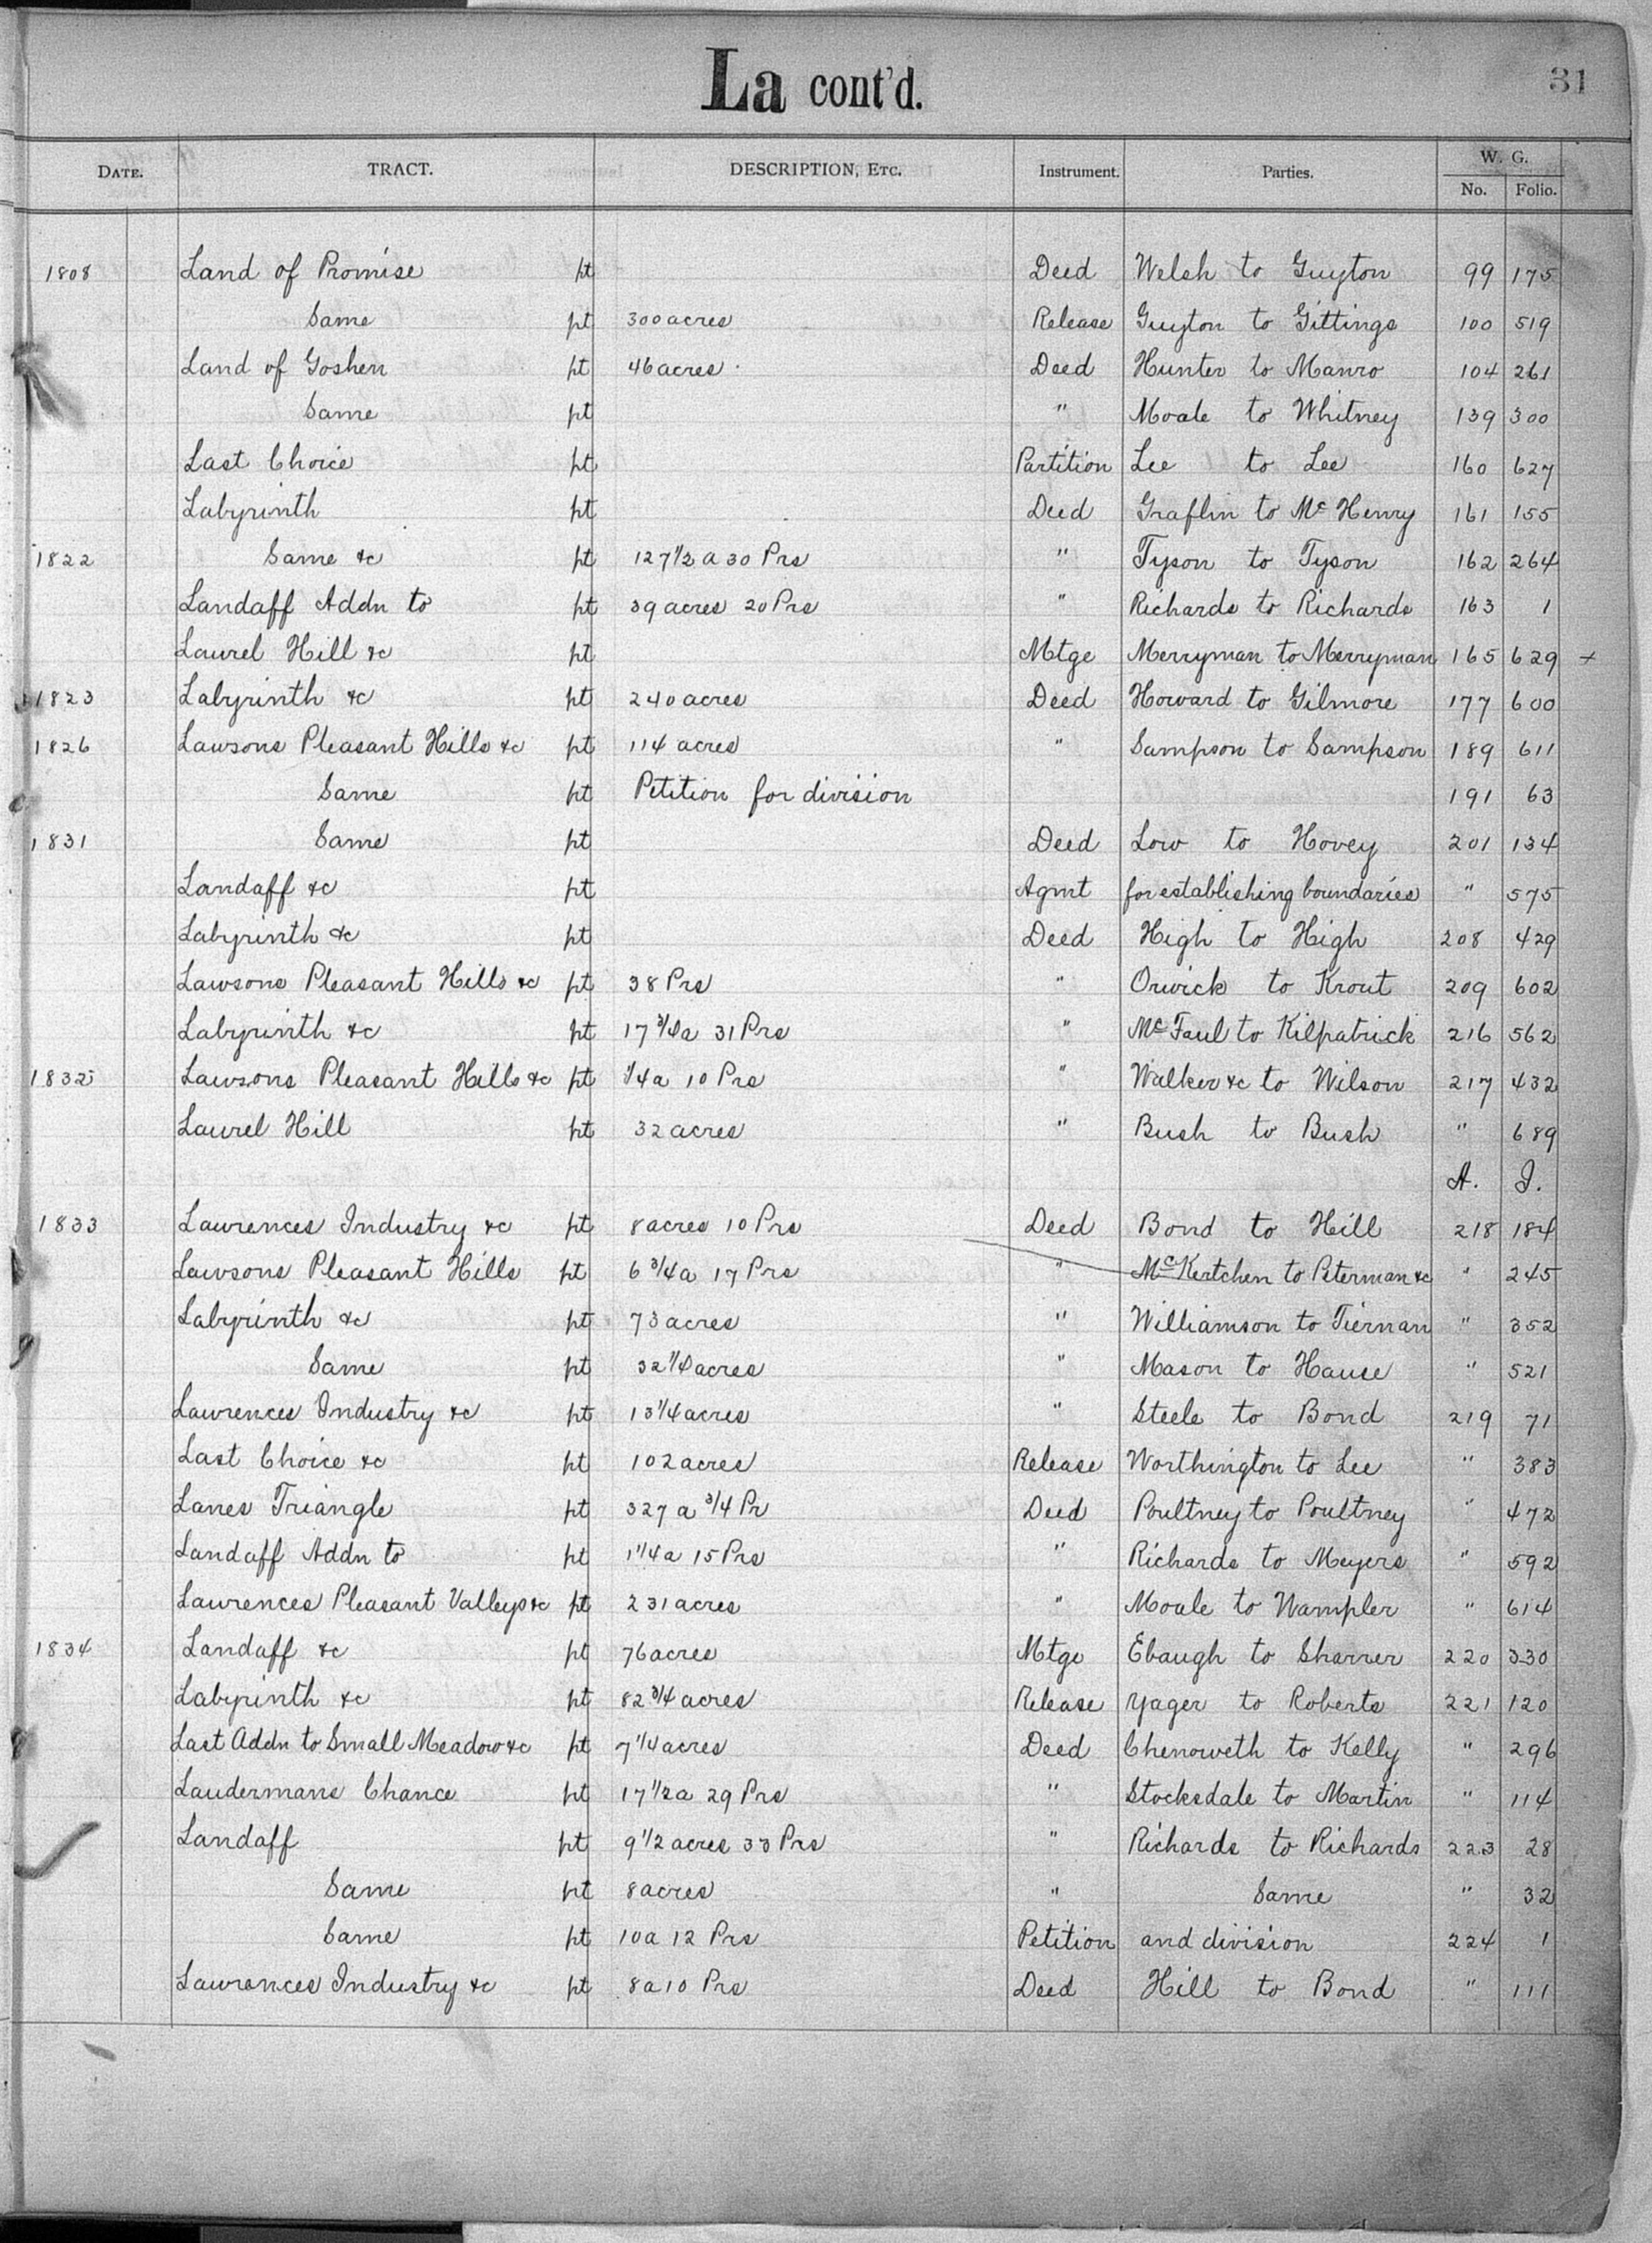 La cont'd.
31
DATE. TRACT. DESCRIPTION, ETC. Instrument. Parties. W. G.
No. Folio.
1808 Land of Promise pt Deed Welsh to Guyton 99 175
Same pt 300 acres Release Guyton to Gittings 100 519
Land of Goshen pt 46 acres Deed Hunter to Manro 104 261
Same pt " Moale to Whitney 139 300
Last Choice pt Partition Lee to Lee 160 627
Labyrinth pt Deed Graflin to Mc Henry 161 155
1822 Same &c pt 127 1/2 a 30 Prs " Tyson to Tyson 162 264
Landaff Addn to pt 39 acres 20 Prs " Richards to Richards 163 1
Laurel Hill &c pt Mtge Merryman to Merryman 165 629 +
1823 Labyrinth &c pt 240 acres Deed Howard to Gilmore 177 600
1826 Lawsons Pleasant Hills &c pt 114 acres " Sampson to Sampson 189 611
Same pt Petition for division 191 63
1831 Same pt Deed Low to Hovey 201 134
Landaff &c pt Agmt for establishing boundaries " 575
Labyrinth &c pt Deed High to High 208 429
Lawsons Pleasant Hills &c pt 38 Prs " Orwick to Krout 209 602
Labyrinth &c pt 17 3/4 a 31 Prs " McFaul to Kilpatrick 216 562
1832 Lawsons Pleasant Hills &c pt 1/4 a 10 Prs " Walker &c to Wilson 217 432
Laurel Hill pt 32 acres " Bush to Bush " 689
A. I.
1833 Lawrences Industry &c pt 8 acres 10 Prs Deed Bond to Hill 218 184
Lawsons Pleasant Hills pt 6 3/4 a 17 Prs " McKertchen to Peterman &c " 245
Labyrinth &c pt 73 acres " Williamson to Tiernan " 352
Same pt 32 1/4 acres " Mason to Hause " 521
Lawrences Industry &c pt 13 1/4 acres " Steele to Bond 219 71
Last Choice &c pt 102 acres Release Worthington to Lee " 383
Lanes Triangle pt 327 a 3/4 Pr Deed Poultney to Poultney " 472
Landaff Addn to pt 1 1/4 a 15 Prs " Richards to Meyers " 592
Lawrences Pleasant Valleys &c pt 231 acres " Moale to Wampler " 614
1834 Landaff &c pt 76 acres Mtge Ebaugh to Sharrer 220 330
Labyrinth &c pt 82 3/4 acres Release Yager to Roberts 221 120
Last Addn to Small Meadow &c pt 7 1/4 acres Deed Chenoweth to Kelly " 296
Laudermans Chance pt 17 1/2 a 29 Prs " Stocksdale to Martin " 114
Landaff pt 9 1/2 acres 33 Prs " Richards to Richards 223 28
Same pt 8 acres " Same " 32
Same pt 10 a 12 Prs Petition and division 224 1
Lawrences Industry &c pt 8 a 10 Prs Deed Hill to Bond " 111